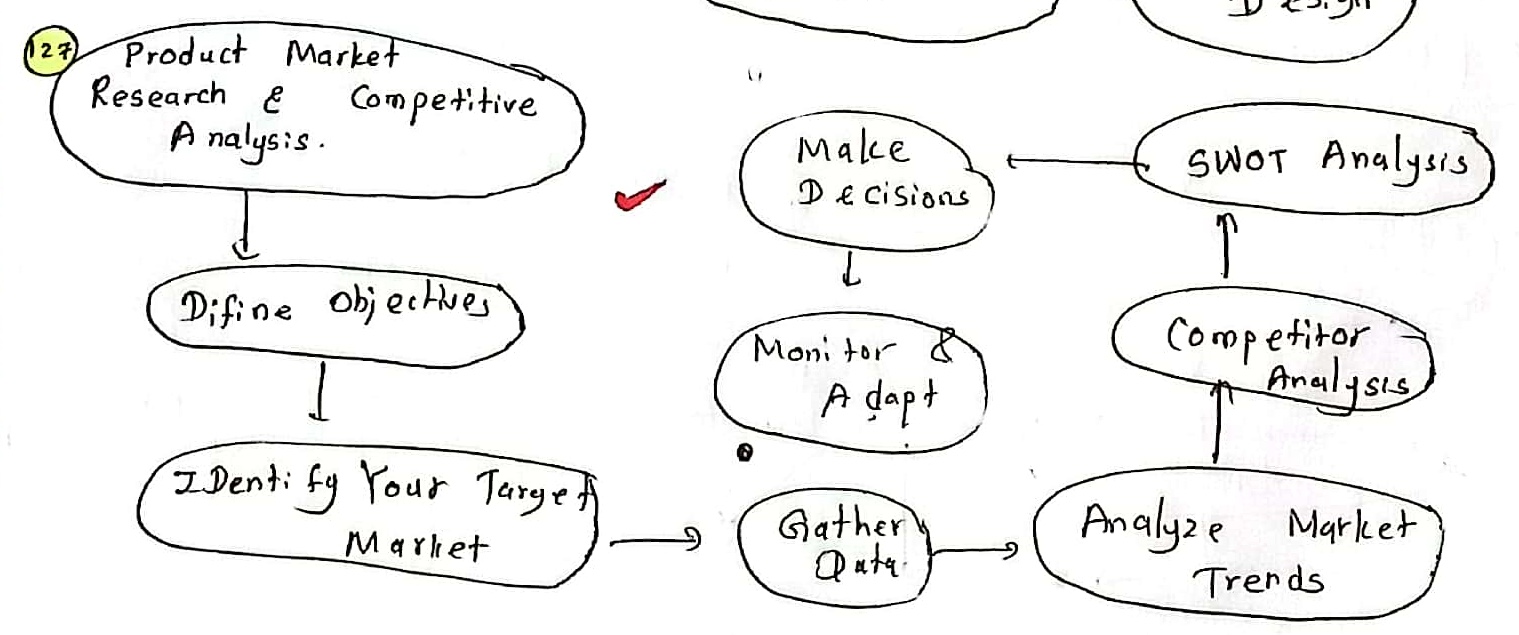 Design
127
Product Market
Research & Competitive
Analysis.
Difine Objectives
IDentify Your Target
Market
Gather
Data
Analyze Market
Trends
Competitor
Analysis
SWOT Analysis
Make
Decisions
Monitor &
Adapt